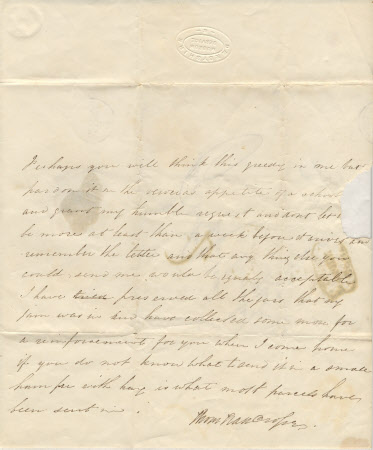 Perhaps you will think this greedy in me but
pardon it as the voracious appetite of a school
and grant my humble request and dont let
be more at best than a week before it arrives and
remember the toffee and that any thing else you
could send me would be equally acceptable
I have preserved all the jars that my
jam was in and have collected some more for
a reinforcement for you when I come home
if you do not know what to send it in a small
hamper with hay is what most parcels have
been sent in.
Thom